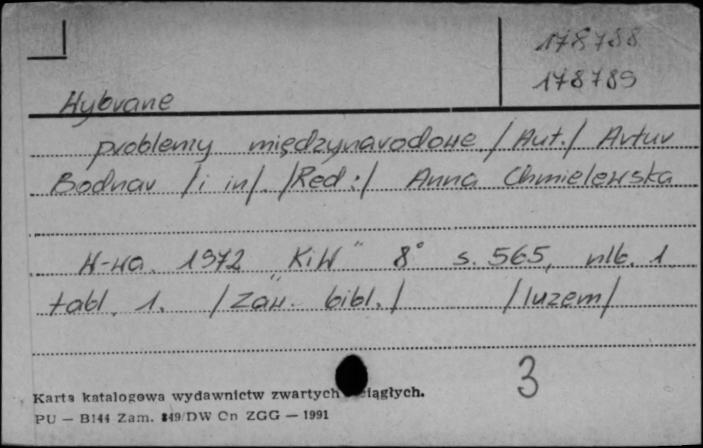 178788
178789
Wybrane
problemy międzynarodowe /Aut./ Artur
Bodnar /i in/. /Red:/ Anna Chmielewska
W-wa. 1972 "KiW" 8° s. 565, nlb. 1
tabl. 1. /Zaw. bibl./ /luzem/
3
Karta katalogowa wydawnictw zwartych ciągłych.
PU — B144 Zam. 849/DW Cn ZGG — 1991